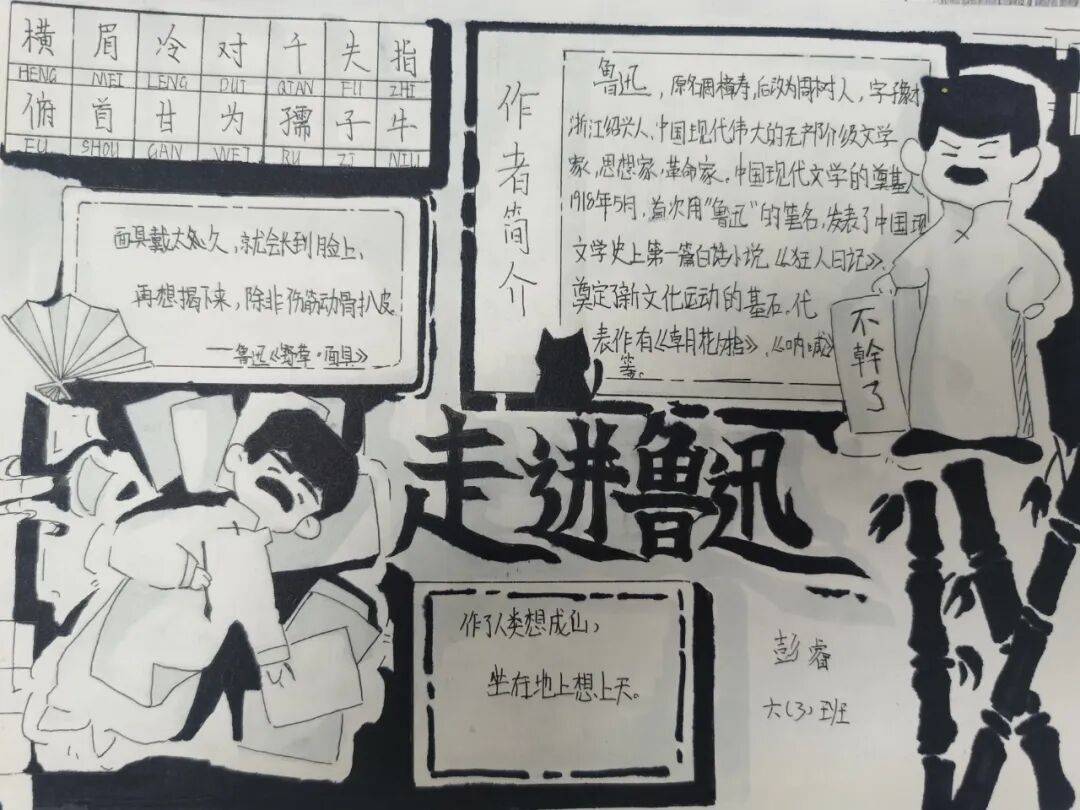 横眉冷对千夫指
HENG MEI LENG DUI QIAN FU ZHI
俯首甘为孺子牛
FU SHOU GAN WEI RU ZI NIU
面具戴太久，就会长到脸上，
再想揭下来，除非伤筋动骨扒皮。
——鲁迅《野草·面具》
作者简介
鲁迅，原名周樟寿，后改为周树人，字豫才
浙江绍兴人、中国现代伟大的无产阶级文学
家，思想家，革命家。中国现代文学的奠基人
1918年5月，首次用“鲁迅”的笔名，发表了中国现
文学史上第一篇白话小说《狂人日记》、
奠定了新文化运动的基石。代
表作有《朝月花夕拾》、《呐喊》
等。
不幹了
走进鲁迅
作了人类想成仙，
坐在地上想上天。
彭睿
六(3)班